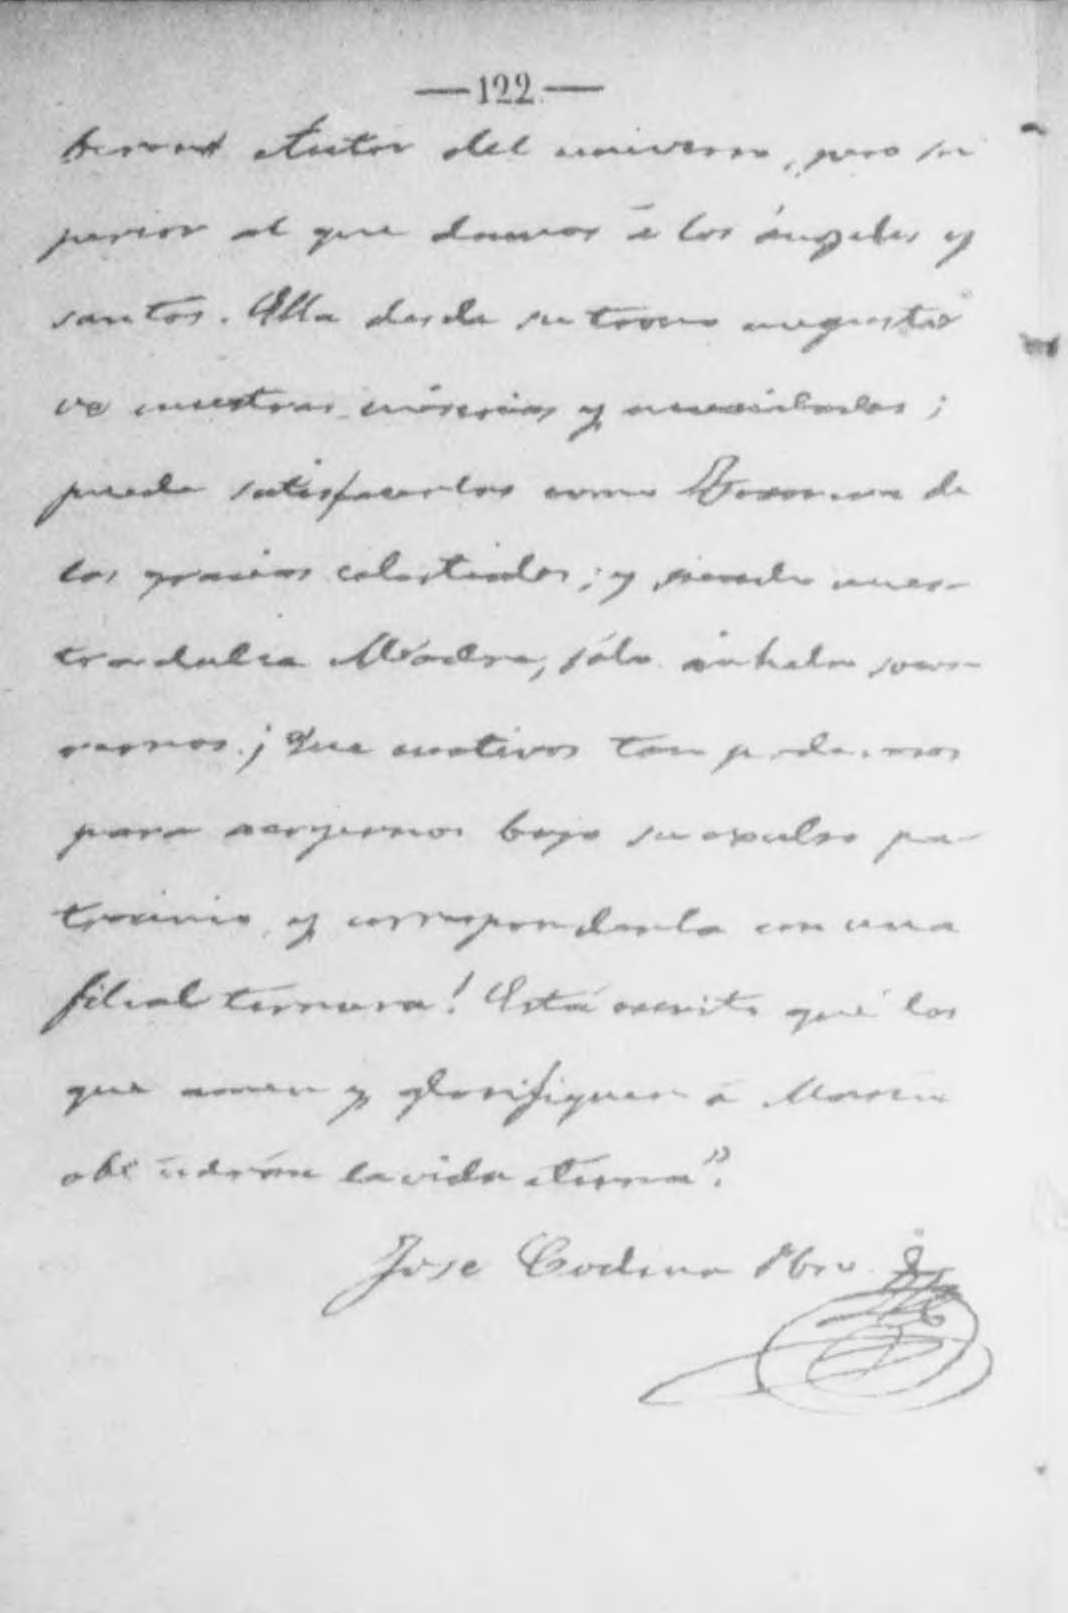 —122—
berano Autor del universo, pero su
perior al que damos á los ángeles y
santos. Ella desde su trono augusto
ve nuestras miserias y necesidades;
puede satisfacerlas como Tesorera de
las gracias celestiales; y siendo nues-
tra dulce Madre, sólo anhela soco-
rrernos. ¡Que motivos tan poderosos
para acogernos bajo su excelso pa-
trocinio, y corresponderla con una
filial ternura! Está escrito que los
que amen y glorifiquen á María
obtendrán la vida eterna".
Jose Codina Pbro.